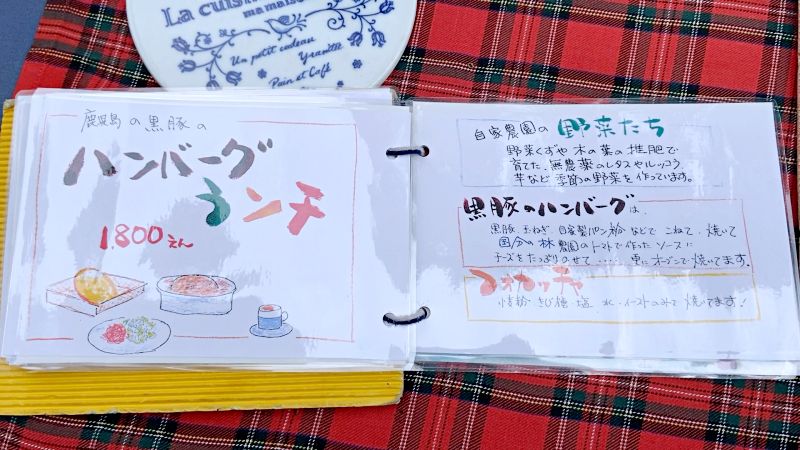 La cuis
ma maiso
Un petit cadeau
Pain et Café
鹿児島の黒豚の
ハンバーグ
ランチ
1,800えん
自家農園の 野菜たち
野菜くずや 木の葉の 堆肥で
育てた、無農薬のレタスやルッコラ
芋など 季節の野菜を作っています。
黒豚のハンバーグは、
黒豚、玉ねぎ、自家製パン粉 などで こねて、焼いて
国分の 林 農園のトマトで作った ソースに
チーズを たっぷりのせて ‥‥‥ 更に オーブンで焼いてます。
フォカッチャ
小麦粉、きび糖、塩、水、イーストのみで 焼いてます!